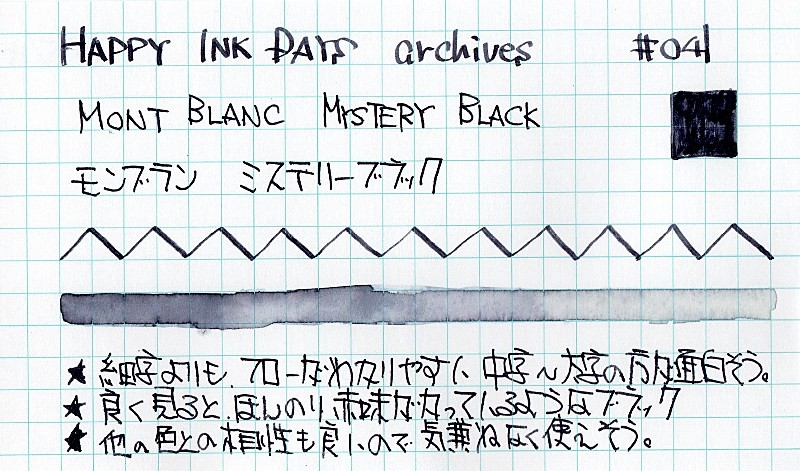 HAPPY INK DAYS archives #041
MONT BLANC MYSTERY BLACK
モンブラン ミステリーブラック
★ 細字よりも、フローなわかりやすい、中字〜太字の方が面白そう。
★ 良く見ると、ほんのり赤味がかっているようなブラック
★ 他の色との相性も良いので気兼ねなく使えそう。